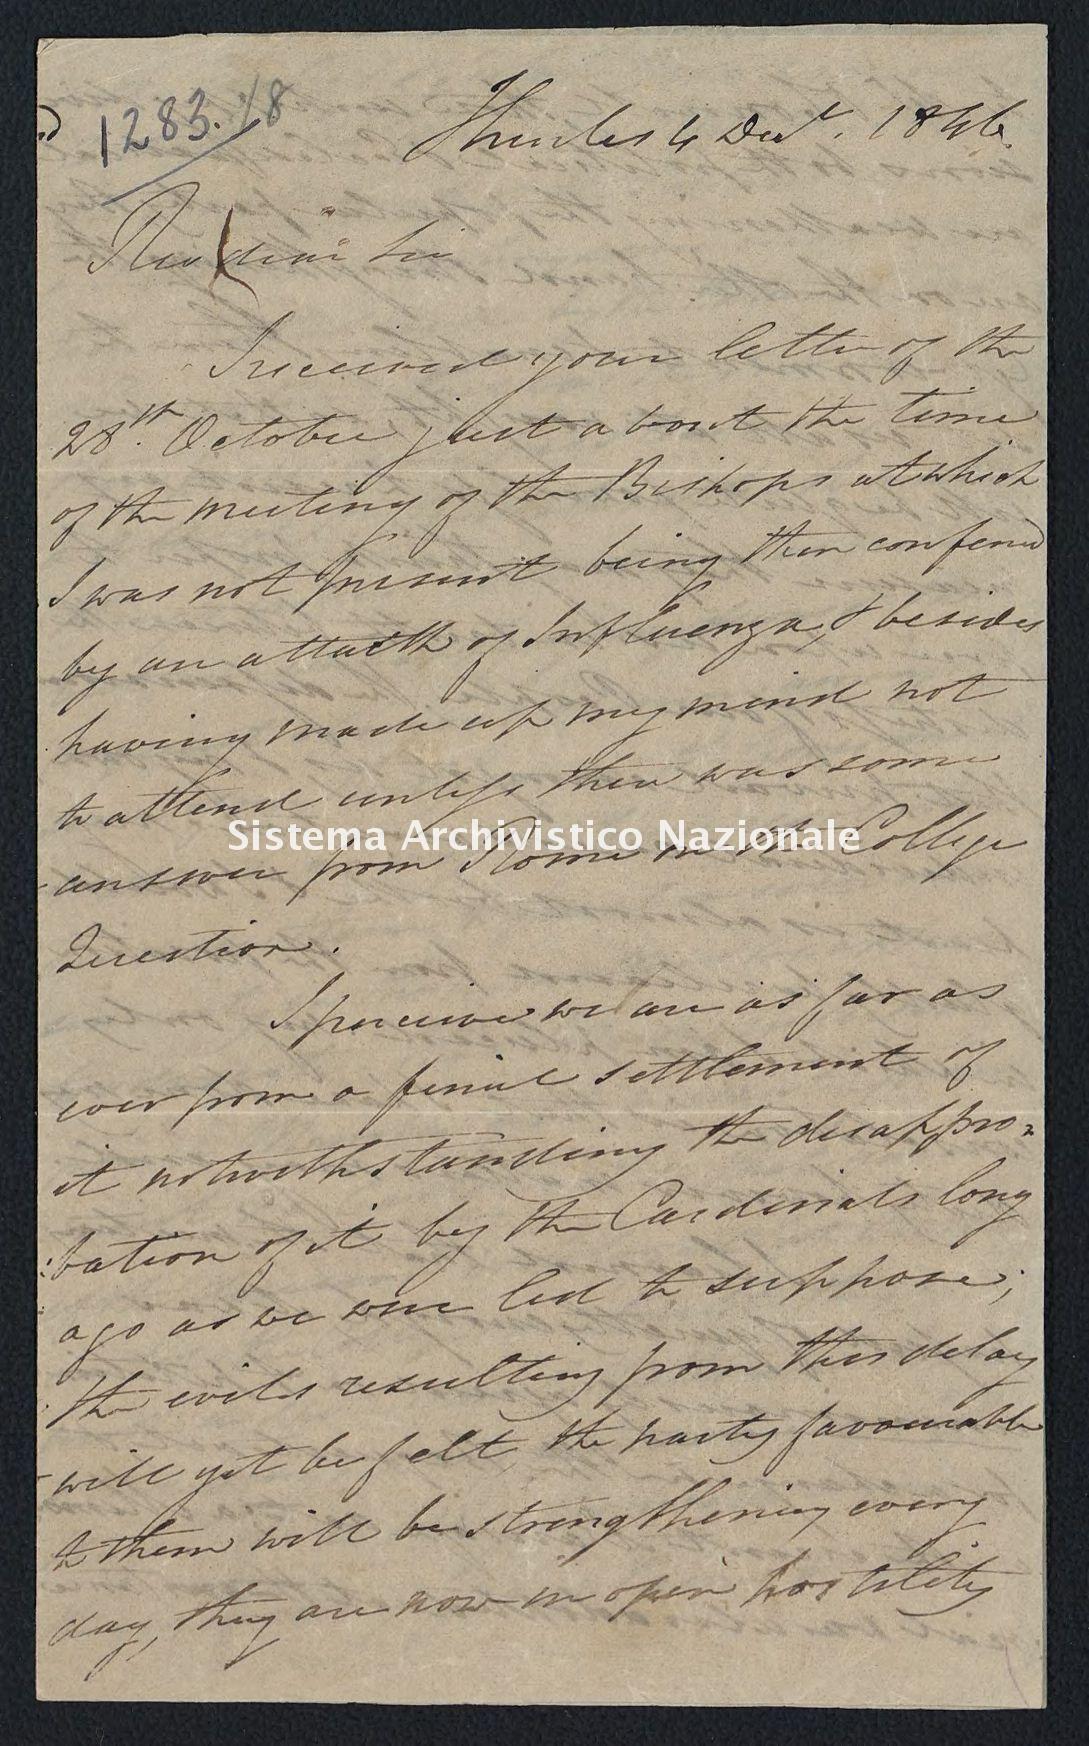 1283./8
Thurles 4 Decr. 1846.
Revd dear Sir
I received your letter of the
28.th October just about the time
of the meeting of the Bishops at which
I was not present being then confined
by an attack of Influenza, & besides
having made up my mind not
to attend unless there was some
Sistema Archivistico Nazionale
answer from Rome on the College
Question.
I perceive we are as far as
ever from a final settlement of
it notwithstanding the disappro=
bation of it by the Cardinals long
ago as we were led to suppose;
the evils resulting from this delay
will yet be felt, the party favourable
to them will be strengthening every
day, they are now in open hostility